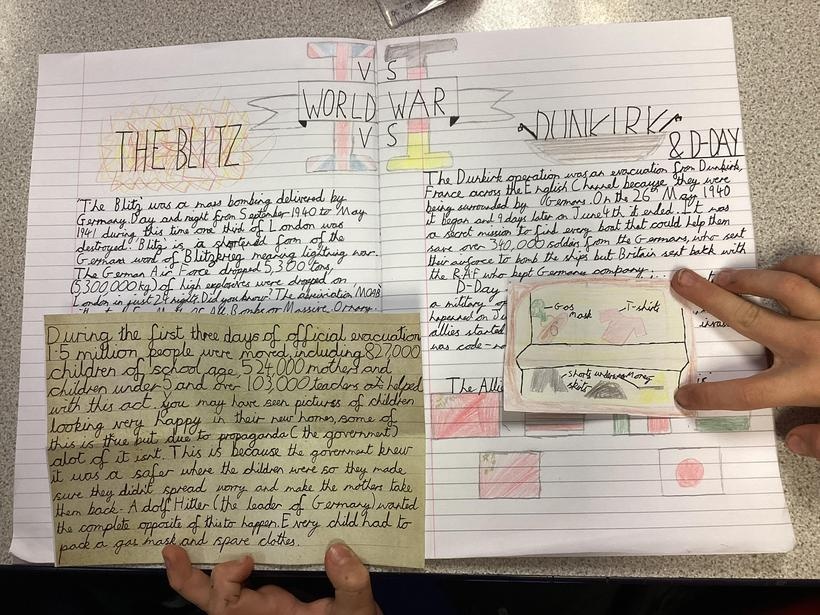 V S
WORLD WAR
V S
THE BLITZ
The Blitz was a mass bombing delivered by
Germany. Day and night from September 1940 to May
1941 during this time one third of London was
destroyed. Blitz is a shortend form of the
German word of Blitzkrieg meaning lightning war.
The German Air Force dropped 5,300 tons,
(5,300,000kg) of high explosives were dropped on
London in just 24 nights. Did you know? The abreviation 'MOAB
All Bombs or Massive
During the first three days of official evacuation
1.5 million people were moved, including 827,000
children of school age, 524,000 mothers and
children under 5 and over 103,000 teachers helped
with this act. You may have seen pictures of children
looking very happy in their new homes, some of
this is true but due to propaganda (the government)
alot of it isnt. This is because the government knew
it was a safer where the children were so they made
sure they didn't spread worry and make the mothers take
them back. Adolf Hitler (the leader of Germany) wanted
the complete opposite of this to happen. Every child had to
pack a gas mask and spare clothes.
DUNKIRK
& D-DAY
The Dunkirk operation was an evacuation from Dunkirk,
France across the English Channel because they were
being surrounded by Germans. On the 26th May 1940
it began and 9 days later on June 4th it ended. It was
a secret mission to find every boat that could help them
save over 340,000 soldiers from the Germans, who sent
their airforce to bomb the ships but Britain sent back with
the RAF who kept Germany company.
D-Day
a military
happened on
allies started
was code-
Gas
mask
T-shirts
Shorts underwear Money
skirts
The Allie